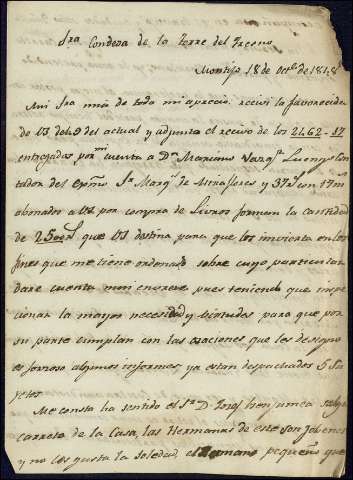 Sra Condesa de la Torre del Fresno
Montijo 18 de Octe de 1818
Mui Sra mia de todo mi aprecio. recivi la favorecida
de VS del 9 del actual y adjunta el recivo de los 2162-17
entregados por mi cuenta a Dn Mariano Con
tador del Exmo Sr Marqs de Miraflores y 37 rs con 17 ms
abonados a VS por compra de Livros forman la cantidad
de 2500 rs que VS destina para que los invierta en los
fines que me tiene ordenado sobre cuyo particular
dare cuenta mui en breve pues teniendo que inspe
cionar la mayor necesidad y virtudes para que por
su parte cumplan con las oraciones que les designo
es forzoso algunos informes, ya estan despachados 5 su
getos
Me consta ha sentido el Sr D. Benjumea salga
carreta de la Casa, las Hermanas de este son jobenes
y no les gusta la soledad, el Hermano pequeño que